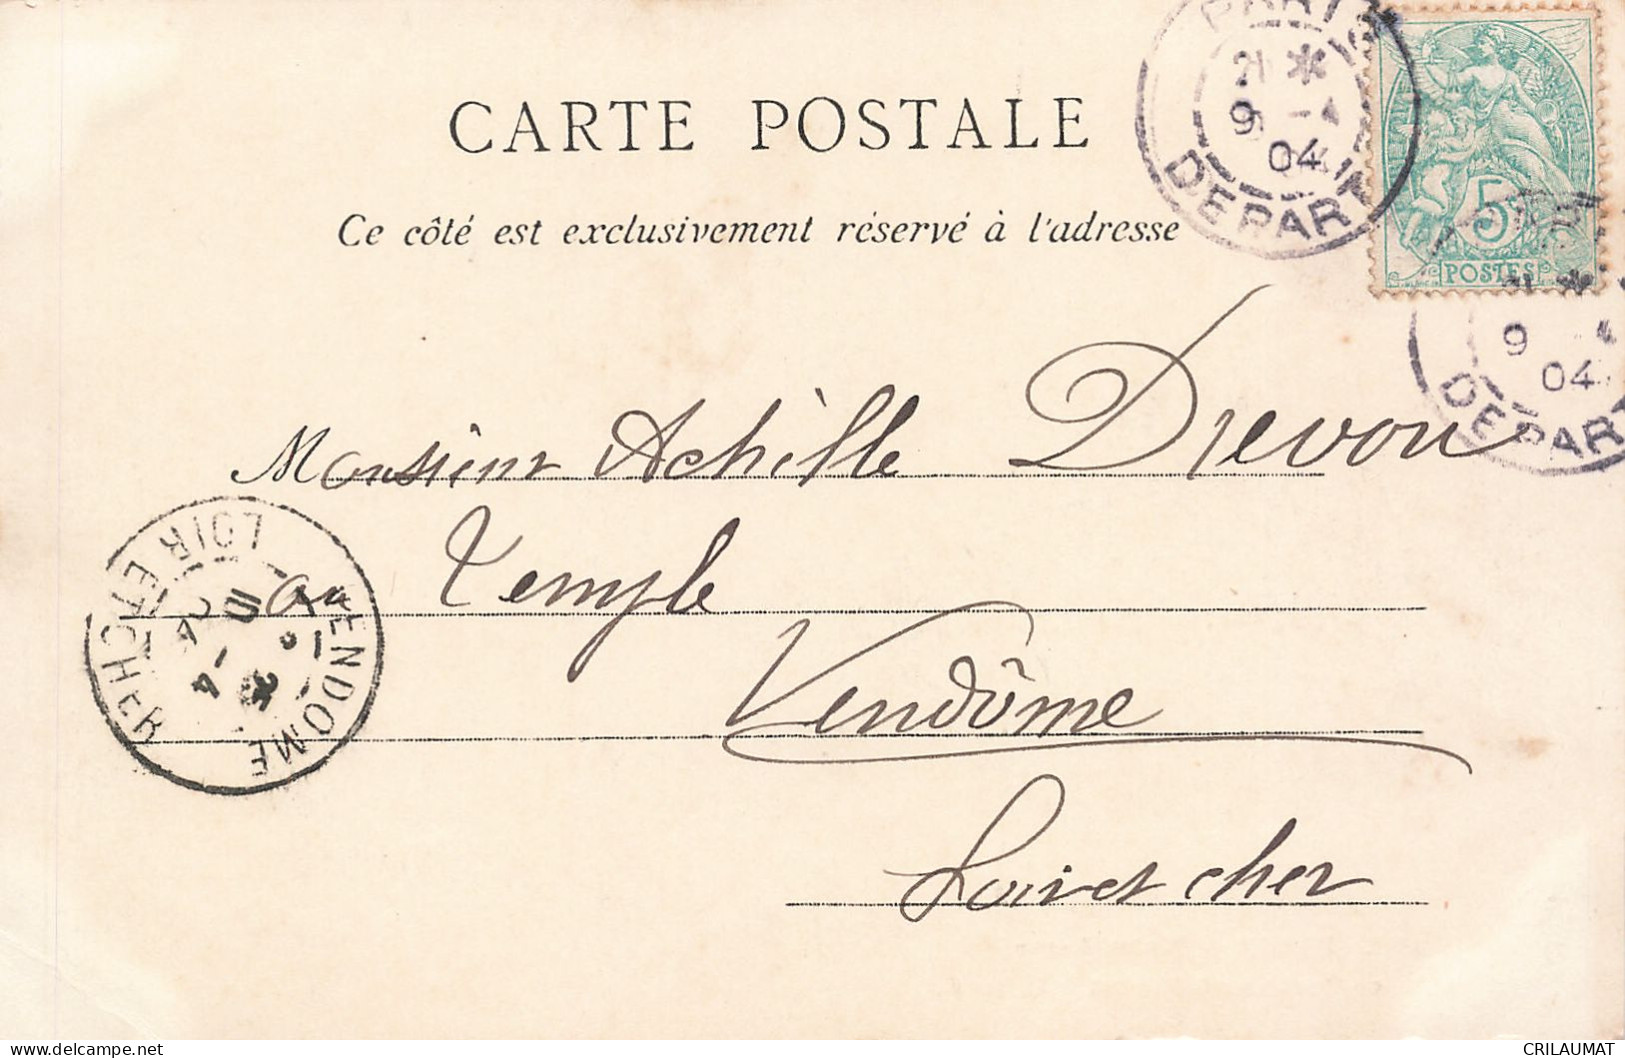 CARTE POSTALE
Ce côté est exclusivement réservé à l'adresse
PARIS
21 *
9 - 4
04
DEPART
5
POSTES
21 *
9
04
DEPART
Monsieur Achille Drevon
au Temple
Vendôme
Loir et cher
VENDOME
LOIR ET CHER
10 - 4
04
CRILAUMAT